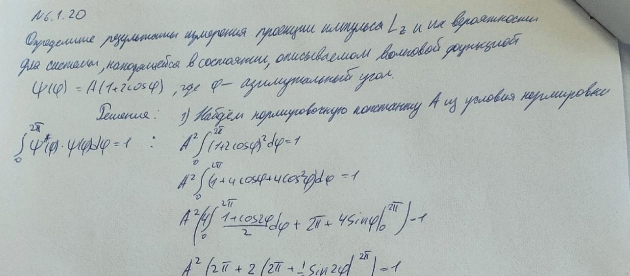 N6.1.20
Определите результаты измерения проекции импульса L_z и их вероятности
для системы, находящейся в состоянии, описываемом волновой функцией
Ψ(φ) = A(1+2cosφ), где φ – азимутальный угол.
Решение: 1) Найдём нормировочную константу A из условия нормировки
∫₀^{2π} Ψ*(φ)·Ψ(φ)dφ=1 : A² ∫₀^{2π} (1+2cosφ)²dφ=1
A² ∫₀^{2π} (1+4cosφ+4cos²φ)dφ = 1
A² (4 ∫₀^{2π} (1+cos2φ)/2 dφ + 2π + 4sinφ|₀^{2π}) = 1
A² (2π + 2 (2π + ½ sin2φ|^{2π}) = 1